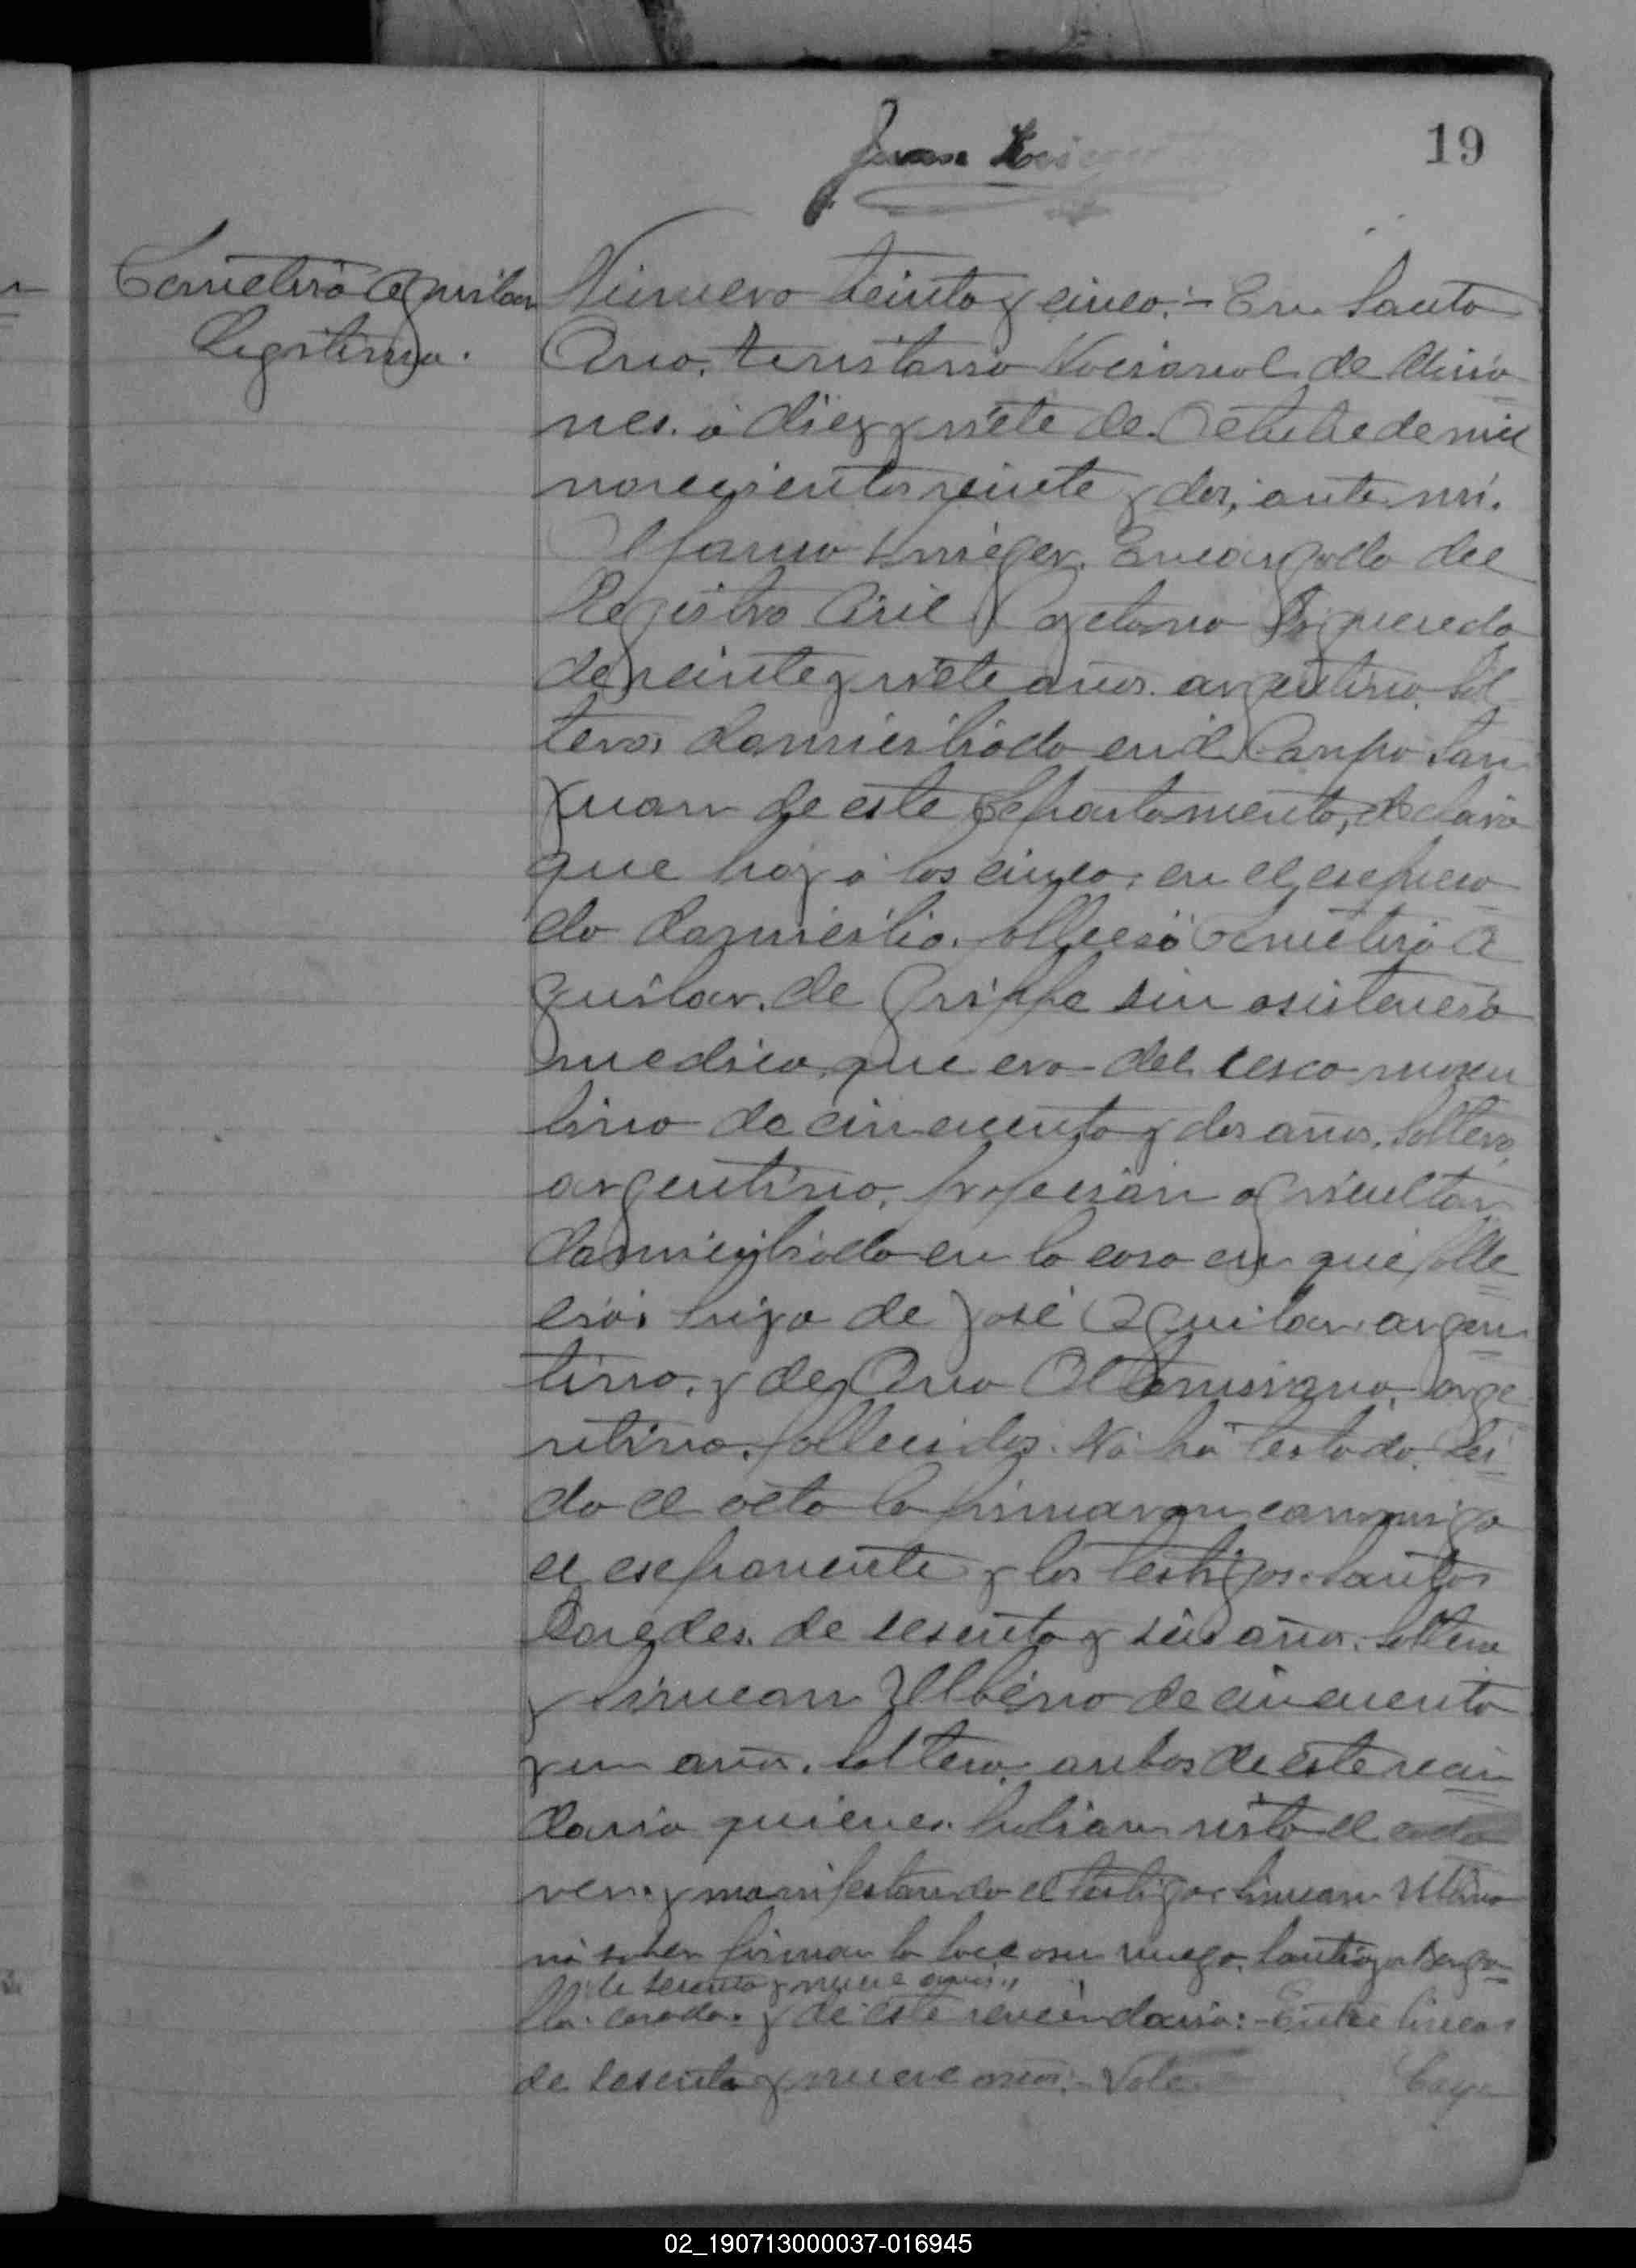 19
Juan
Aguilar
Legítima.
Número treinta y cinco:- En Santa
Ana, territorio Nacional de Misio
nes. á diez y siete de Octubre de mil
novecientos veinte y dos, ante mí.
Krieger. Encargado del
Registro Civil Cayetano Figueredo
de veinte y siete años. argentino. Sol
tero, domiciliado en el Campo San
Juan de este Departamento, declaró
que hoy á las cinco, en el expresa
do domicilio. falleció A
guilar. de Grippe sin asistencia
medica, que era del secso mascu
lino de cincuenta y dos años. Soltero,
argentino, profesión agricultor
domiciliado en la casa en que falle
ció, hijo de José Aguilar, argen
tino, y de Ana argé
ntina. fallecidos. No há testado. Leí
da el acta la firmaron conmigo
el exponente y los testigos. Santos
Paredes. de sesenta y seis años. Soltero
y Simean Albino de cincuenta
y un años. Soltero. ambos de este vecin
dario quienes habian visto el cada
ver. y manifestando el testigo Simean Albino
nó saber firmar lo hace a su ruego. Santiago
de sesenta y nueve años"
casado. y de este vecindario:- Entre lineas
de sesenta y nueve años:- Vale. Caye
02_190713000037-016945